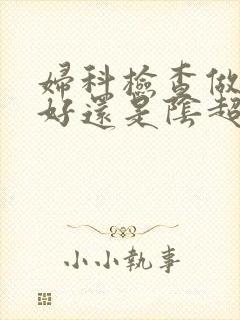 婦科檢查做
好還是陰超
小小執事